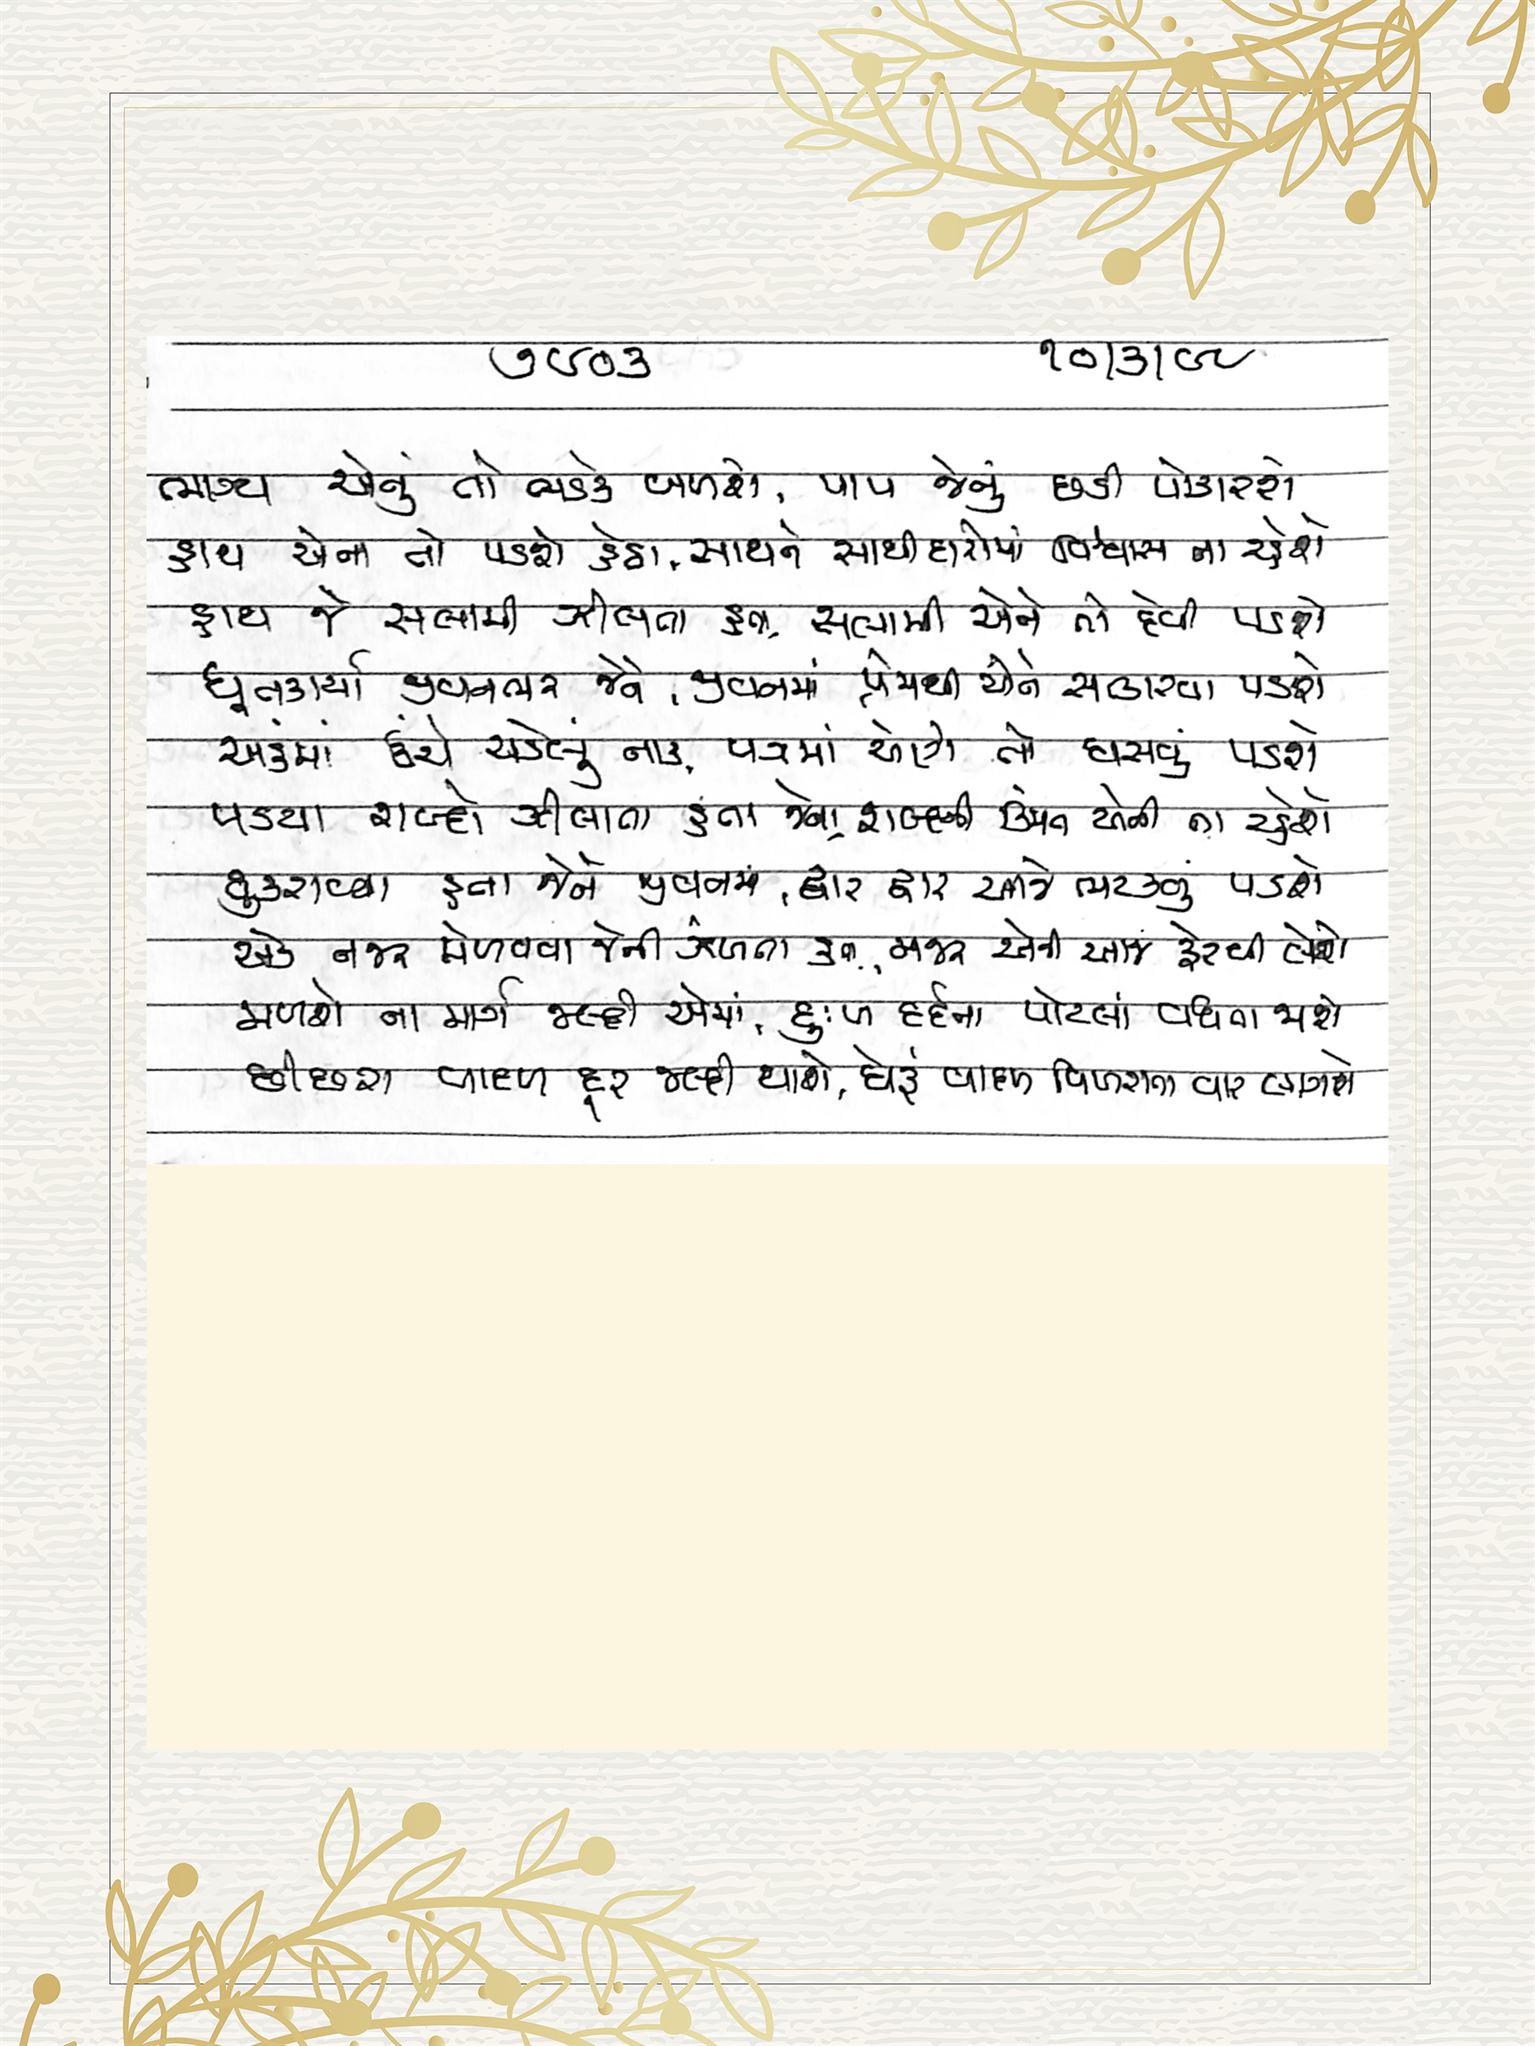 ૭૯૦૩ ૧૦/૩/૯૯
ભાગ્ય એનું તો ભડકે બળશે, પાપ જેનું છડી પોકારશે
હાથ એના તો પડશે હેઠા, સાથને સાથીદારોમાં વિશ્વાસ ના રહેશે
હાથ જે સલામી ઝીલતા હતા, સલામી એને તો દેવી પડશે
ધૂતકાર્યા જીવનભર જેને, જીવનમાં પ્રેમથી એને સત્કારવા પડશે
અહંમાં ઊંચે ચડેલું નાક, પગમાં એણે તો ઘસવું પડશે
પડયા શબ્દો ઝીલાતા હતા જેના, શબ્દની કિંમત એની ના રહેશે
ઠુકરાવ્યા હતા જેને જીવનમાં, દ્વાર દ્વાર આજે ભટકવું પડશે
એક નજર મેળવવા જેની ઝંખતા હતા, નજર એની આજ ફેરવી લેશે
મળશે ના માર્ગ જલ્દી એમાં, દુઃખ દર્દના પોટલાં વધતા જાશે
છીછરા વાદળ દૂર જલ્દી થાશે, ઘેરું વાદળ વિખરાતા વાર લાગશે